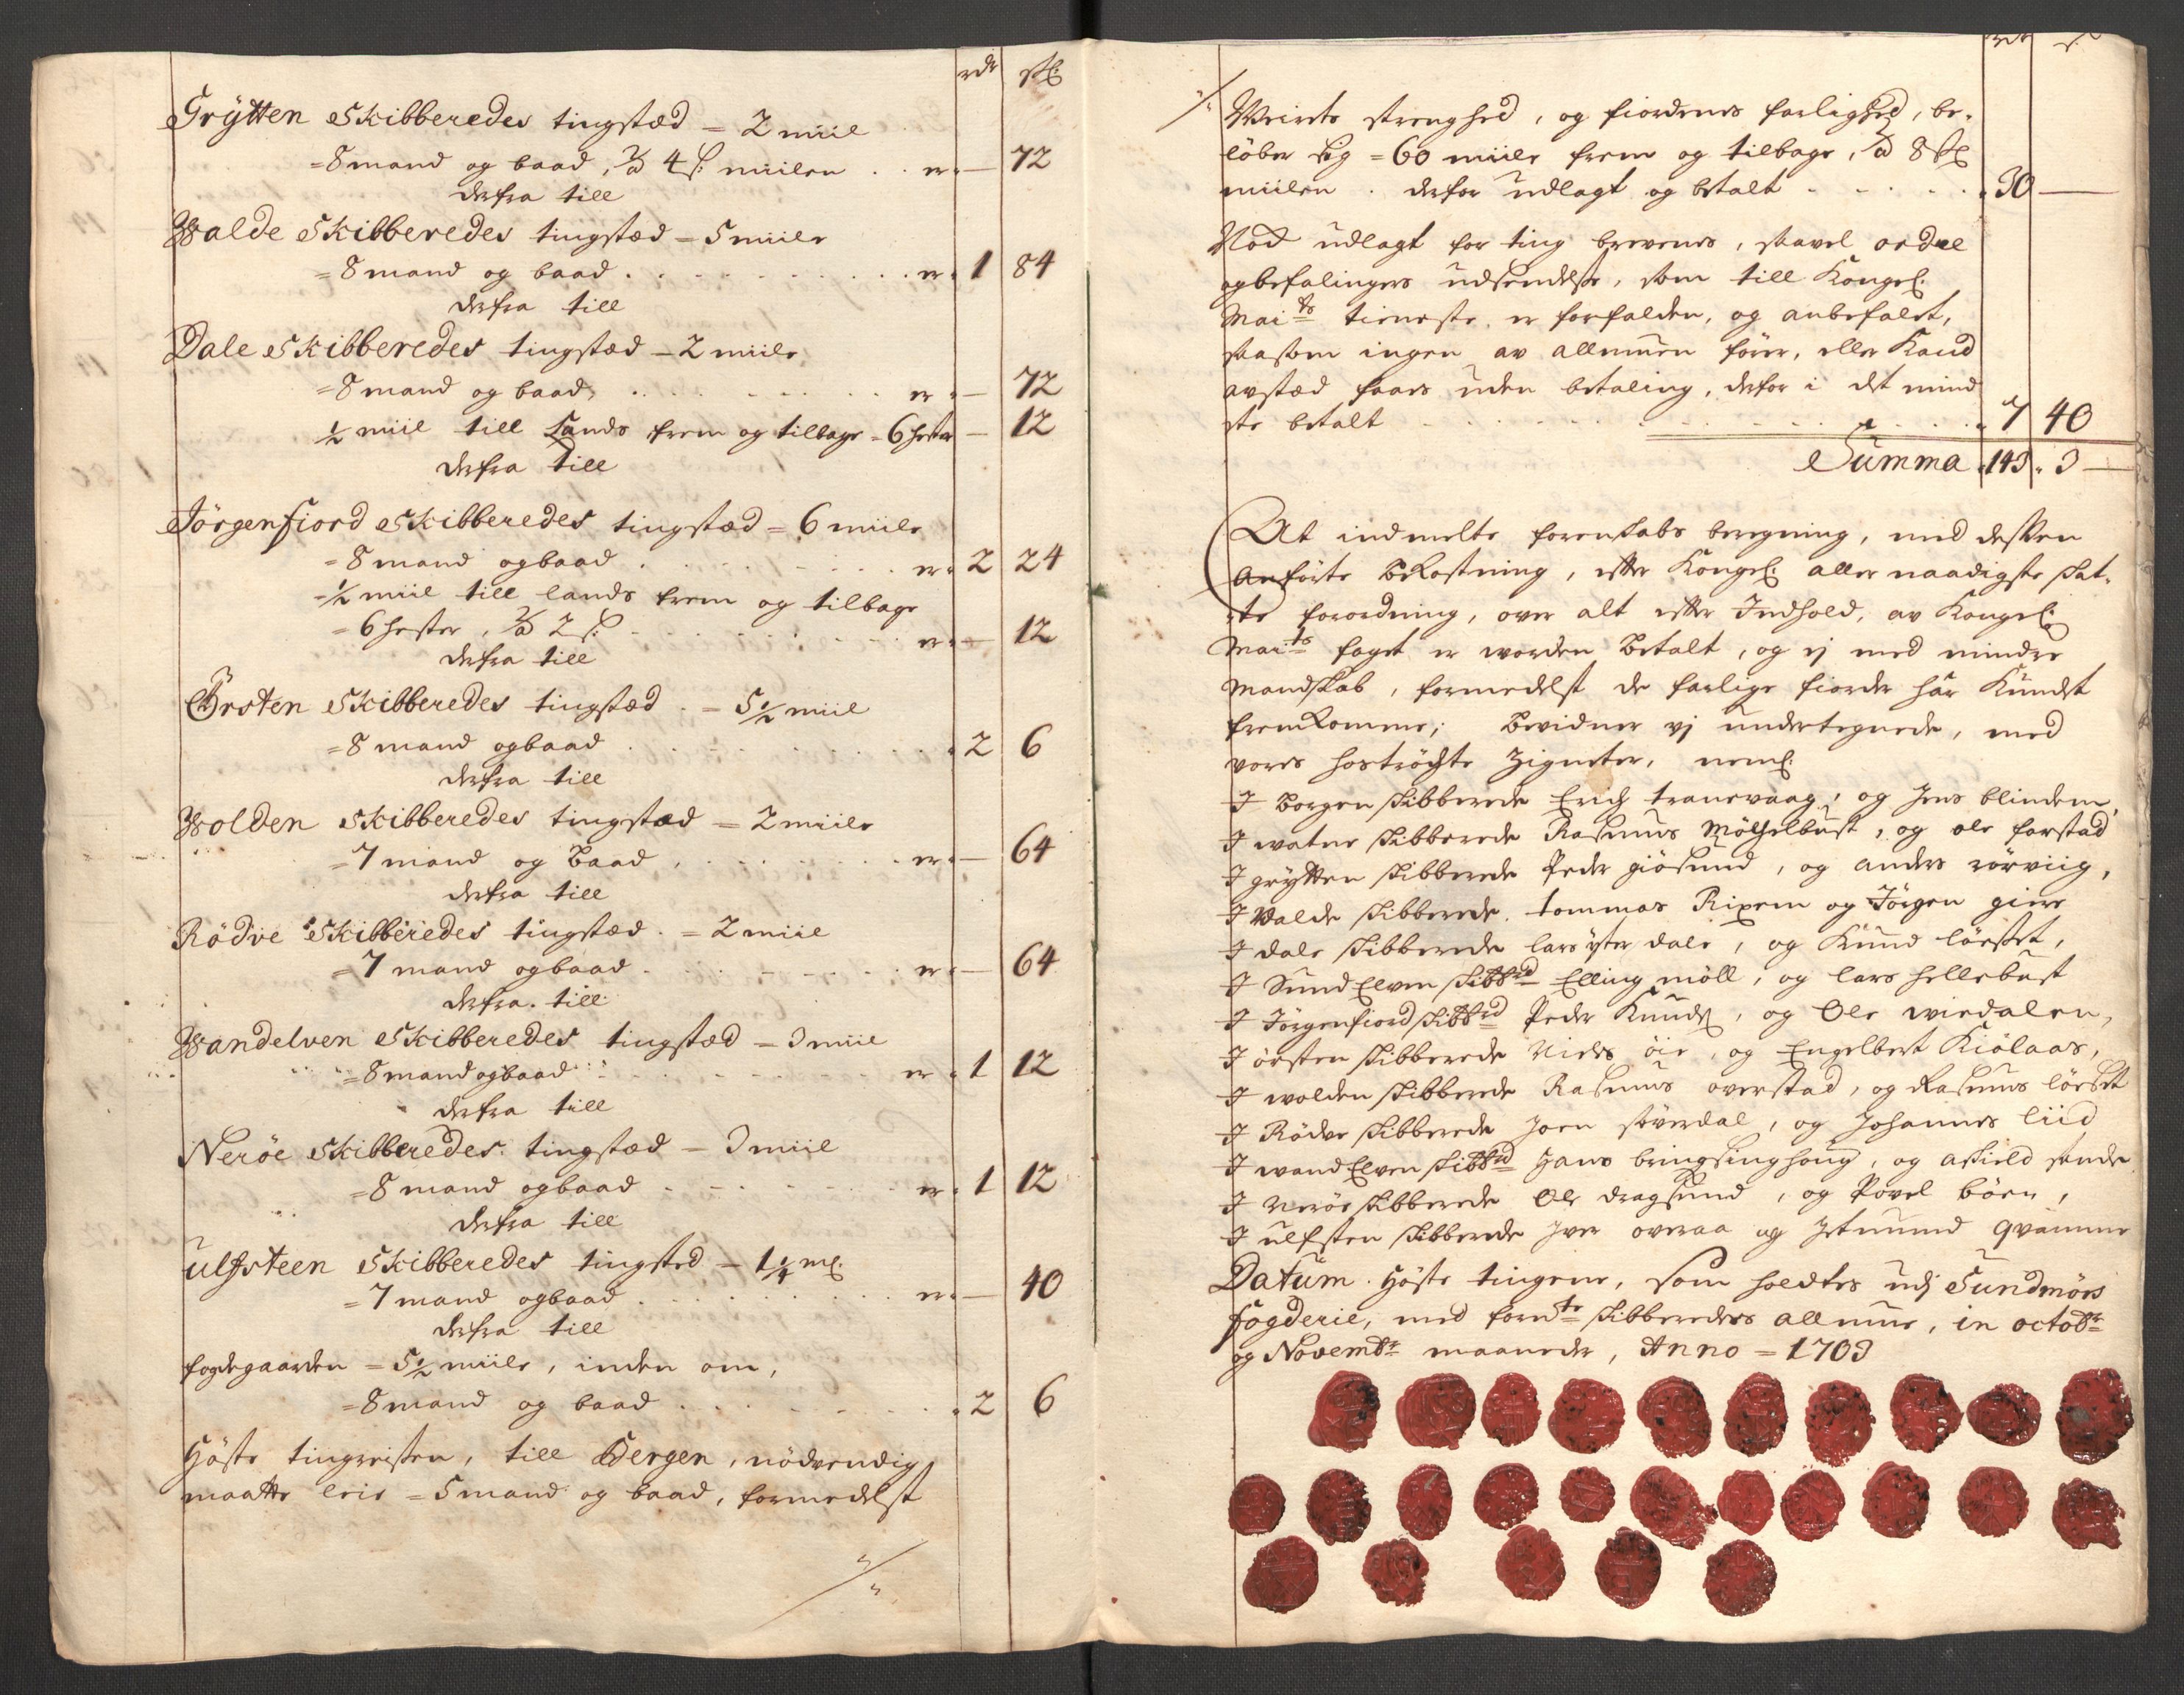 rdr sk
Grÿtten Skibberedes tingstæd = 2 miil
= 8 mand og baad, à 4 s: miilen . . er. — 72
derfra till
Walde Skibberedes tingstæd = 5 miile
= 8 mand og baad . . . . . er. 1 84
derfra till
Dale Skibberedes tingstæd = 2 miile
= 8 mand og baad, . . . . er — 72
½ miil till Lands frem og tilbage = 6 hester — 12
derfra till
Jörgenfiord Skibberedes tingstæd = 6 miile
= 8 mand og baad . . . . er. 2 24
= ½ miil till lands frem og tilbage
= 6 hester, à 2 s: . . . . er. — 12
derfra till
Örsten Skibberedes tingstæd . = 5½ miil
= 8 mand og baad . . . . . 2 6
derfra till
Wolden Skibberedes tingstæd = 2 miile
= 7 mand og baad, . . . . er. — 64
derfra till
Rödve Skibberedes tingstæd . = 2 miil
= 7 mand og baad . . . . er. — 64
derfra till
Wandelven Skibberedes tingstæd = 3 miil
= 8 mand og baad . . . . er 1 12
derfra till
Neröe Skibberedes tingstæd = 3 miil
= 8 mand og baad . . . . er. 1 12
derfra till
Ulfsteen Skibberedes tingsted = 1¼ ml:
= 7 mand og baad . . . . er. — 40
derfra till
fogdegaarden = 5½ miile, inden om,
= 8 mand og baad . . . . . 2 6
Höste tingreisen, till Bergen, nödvendig
maatte leie = 5 mand og baad, formedelst
rdr s
Weirets strenghed, og fiordenes farlighed, be-
löber sig = 60 miile frem og tilbage, à 8 sk
miilen . derfor udlagt og betalt . . . . 30 —
Nock udlagt for ting brevenes, stavel ordre
og befalingers udsendelse, som till Kongel:
Maits tieneste er forfalden, og anbefalet,
saasom ingen av allmuen fører, eller Kand
avsted faaes uden betaling, derfor i det mind
ste betalt . . . . . 7 40
Summa . 143 . 3 —
At indmelte forenskabs beregning, med dessen
Anförte Bekostning, efter Kongel: aller naadigste skat-
te forordning, over alt efter Indhold, av Kongel:
Maits foget er worden Betalt, og ej med mindre
Mandskab, formedelst de farlige fiorder har Kundet
fremkomme; Bevidner vj undertegnede, med
vores hoströchte Zigneter, neml:
J Borgen skibberede Erich tranevaag, og Jens blindem,
J watne skibberede Rasmus Mölgelbust, og ole farstad
J grÿtten skibberede Peder giösund, og anders rörviig,
J Walde skibberede, tommas Rixem og Jörgen giere
J dale skibberede lars ÿter dale, og Knud lörset,
J Sund Elven skibbrd Elling möll, og lars hellebust
J Jörgenfiord skibbrd Peder Knuds, og Ole wiedalen,
J örsten skibberede Niels öie, og Engelbert Kiölaas,
J wolden skibberede Rasmus overstad, og Rasmus lörset
J Rödve skibberede Joen störedal, og Johannes liid
J wand Elven skibbrd Hans bringsinghoug, og askield sande
J Neröe skibberede Ole dragsund, og Povel böen,
J ulfsten skibberede Jver overaa og Jetmund qvamme
Datum . Höste tingene, som holdtes udj Sundmörs
fogderie, med forndte skibberedes allmue, in octobr
og Novembr maaneder, Anno = 1703